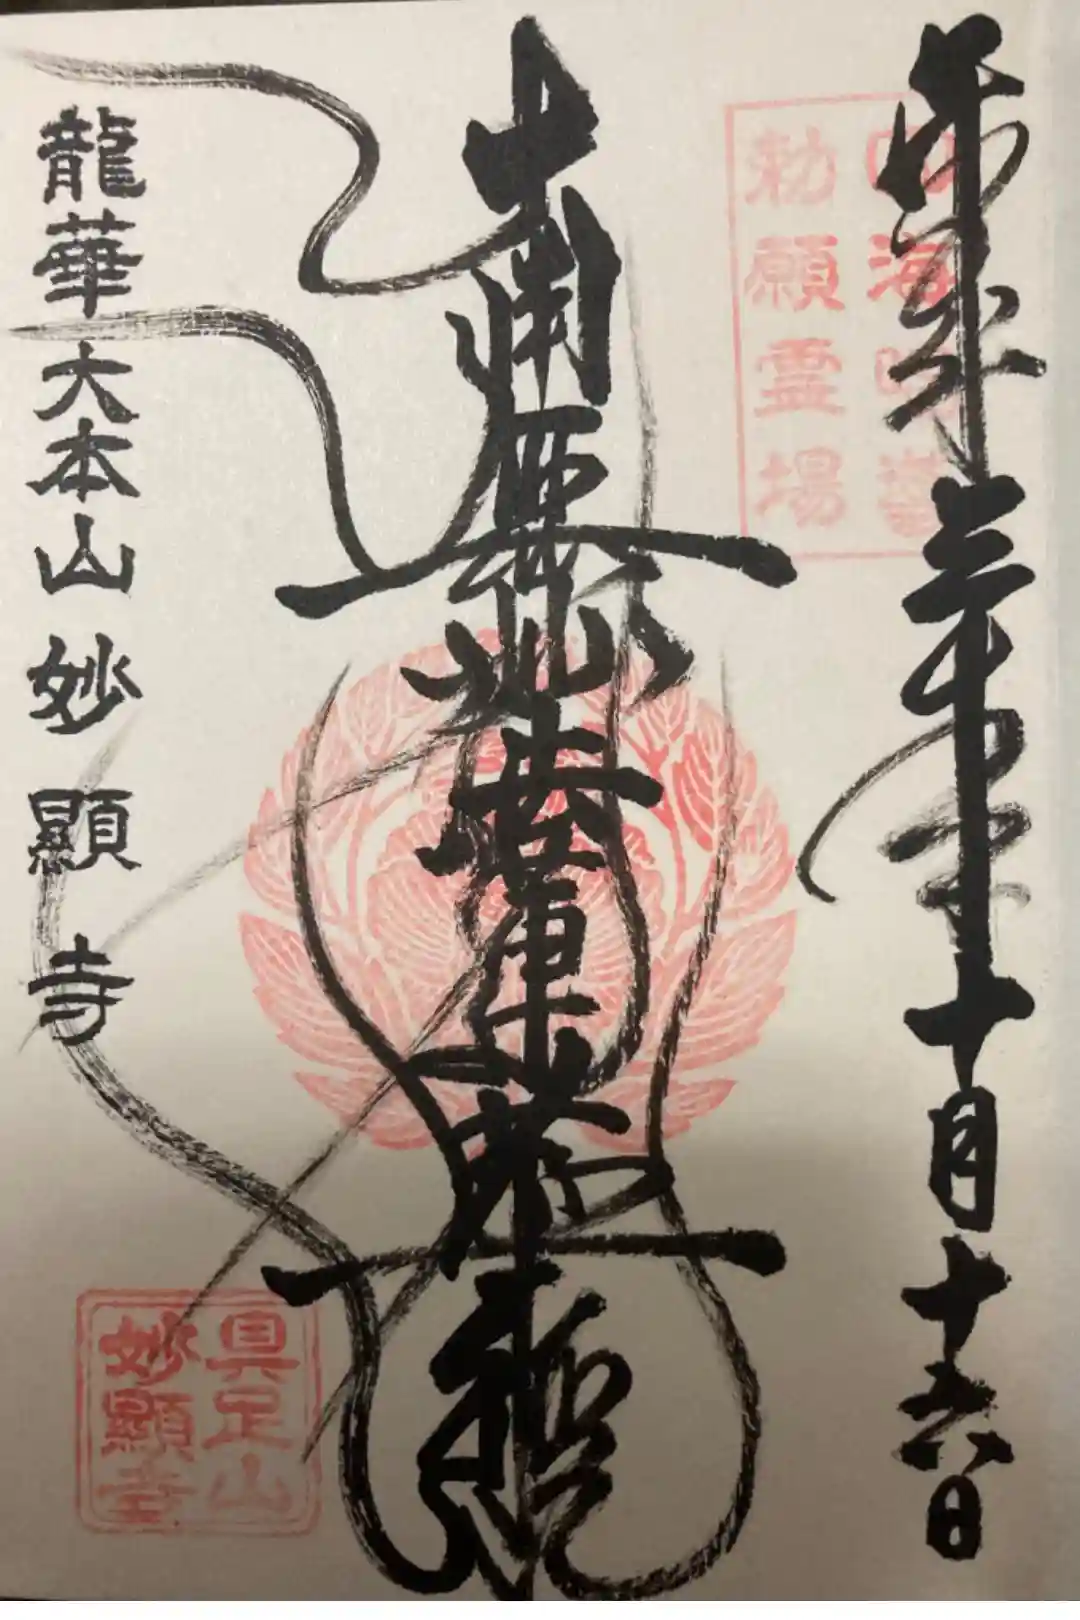 十月十六日
四海唱導
勅願霊場
南無妙法蓮華経
龍華大本山妙顯寺
具足山
妙顯寺